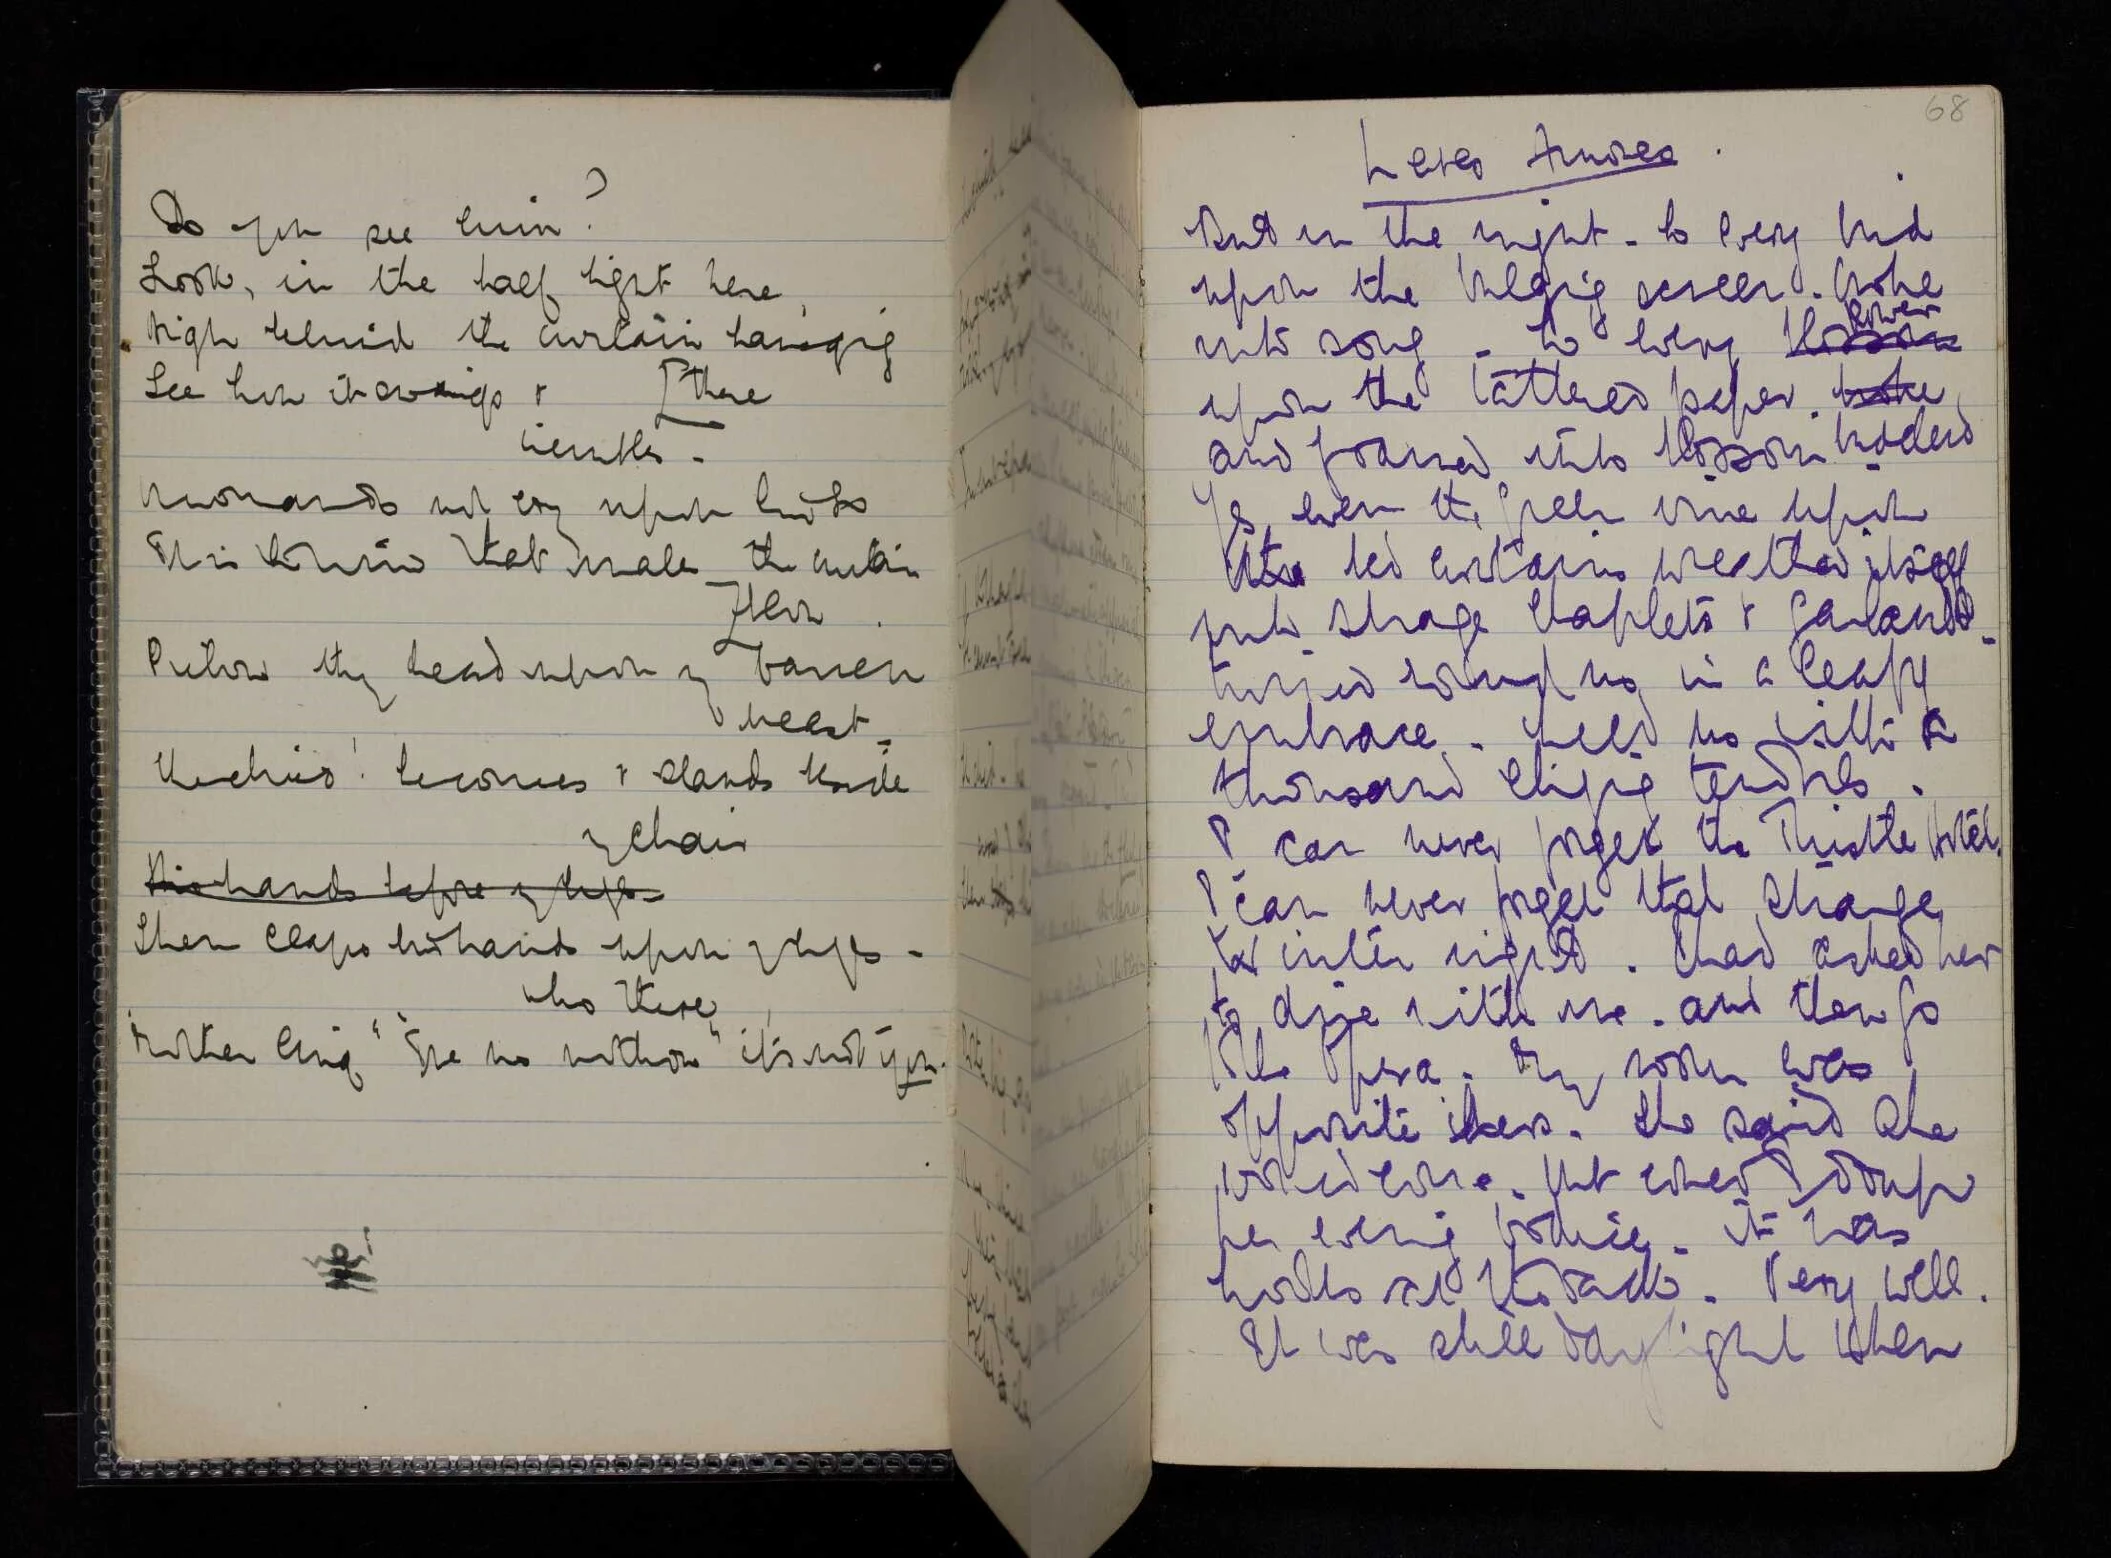 Do you see him?
Look, in the half light here,
High behind the curtain hanging
See how it swings & [there
trembles -
not cry upon
It is the wind that makes the curtain
[blow.
Pillow thy head upon my barren
breast -
The child! he comes & stands beside
my chair
His hands before my eyes -
Then claps his hands upon my eyes -
who there
"Mother King" "I've no mother" it's not you.
68
Leves Amores.
And in the night - to every bird
upon the bulging screen. broke
into song - to every blossom flower
upon the tattered paper. broke
and formed into blossom budded
Yes, even the green vine upon
the bed curtains wreathed itself
into strange chaplets & garlands -
twined round us in a leafy
embrace - held us with a
thousand clinging tendrils.
I can never forget the Thistle Hotel.
I can never forget that strange
winter night. I had asked her
to dine with me. and then go
to the Opera. My room was
opposite hers. She said she
would come. but could I do up
her evening bodice - it was
hooks at the back. Very well.
It was still daylight when